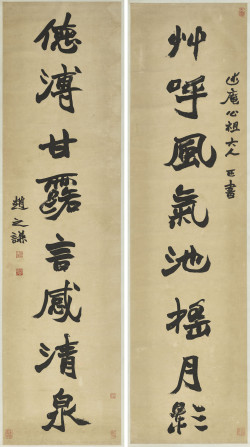 艸呼風氣池搖月影
公祖大人 正書
德溥甘露言感清泉
趙之謙